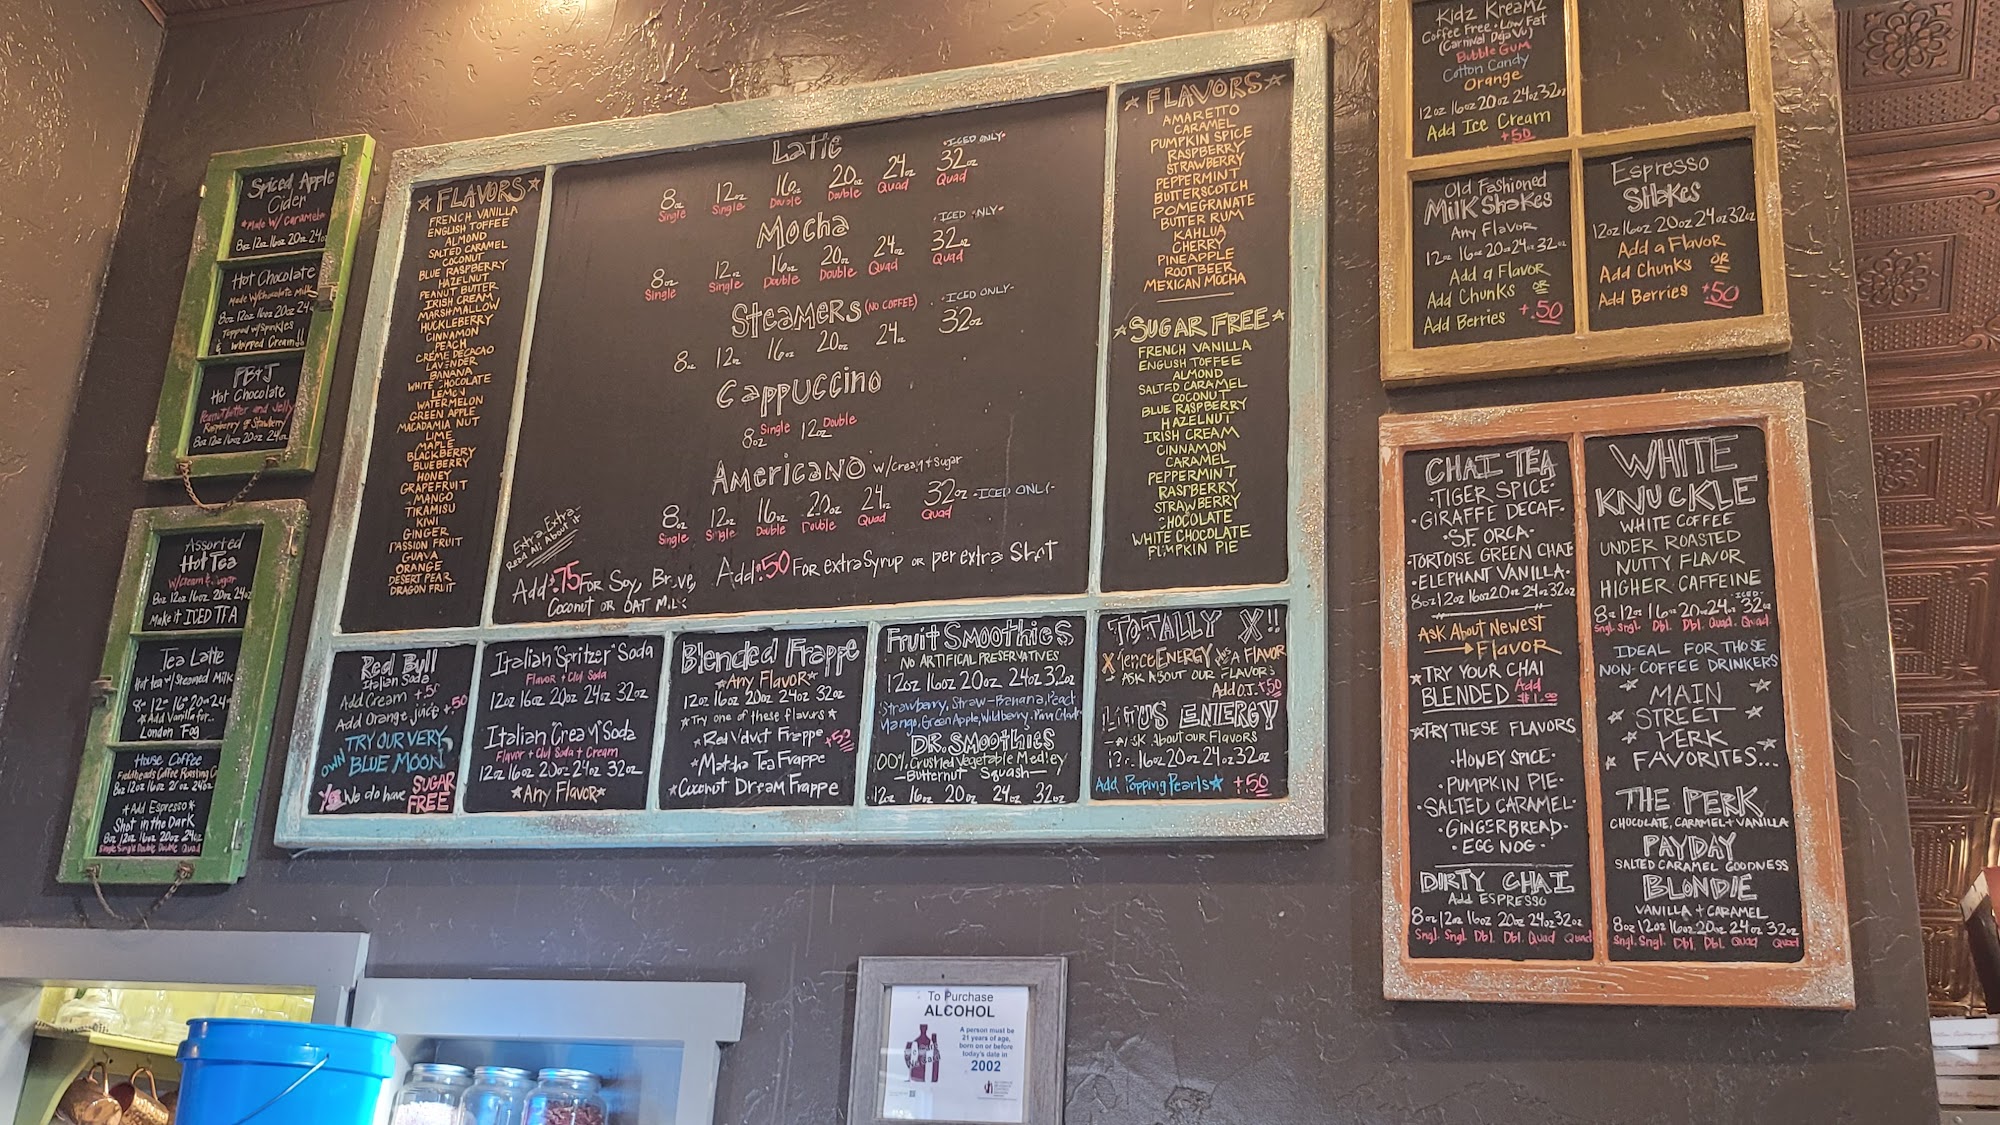 Spiced Apple
Cider
*Made W/Caramel*
8oz 12oz 16oz 20oz 24oz
Hot Chocolate
Made W/Chocolate Milk
8oz 12oz 16oz 20oz 24oz
Topped w/Sprinkles
& Whipped Cream!!
PB&J
Hot Chocolate
Peanutbutter and Jelly
Raspberry or Strawberry
8oz 12oz 16oz 20oz 24oz
Assorted
Hot Tea
W/Cream & Sugar
8oz 12oz 16oz 20oz 24oz
Make it ICED TEA
Tea Latte
Hot tea w/Steamed Milk
8- 12- 16- 20- 24-
*Add Vanilla for..
London Fog
House Coffee
Coffee Roasting Co
8oz 12oz 16oz 20oz 24oz
*Add Espresso*
Shot in the Dark
8oz 12oz 16oz 20oz 24oz
Single Single Double Double Quad
*FLAVORS*
FRENCH VANILLA
ENGLISH TOFFEE
ALMOND
SALTED CARAMEL
COCONUT
BLUE RASPBERRY
HAZELNUT
PEANUT BUTTER
IRISH CREAM
MARSHMALLOW
HUCKLEBERRY
CINNAMON
PEACH
CRÈME DECACAO
LAVENDER
BANANA
WHITE CHOCOLATE
LEMON
WATERMELON
GREEN APPLE
MACADAMIA NUT
LIME
MAPLE
BLACKBERRY
BLUEBERRY
HONEY
GRAPEFRUIT
MANGO
TIRAMISU
KIWI
GINGER
PASSION FRUIT
GUAVA
ORANGE
DESERT PEAR
DRAGON FRUIT
Latte
8oz 12oz 16oz 20oz 24oz 32oz •ICED ONLY•
Single Single Double Double Quad Quad
Mocha
8oz 12oz 16oz 20oz 24oz 32oz •ICED ONLY•
Single Single Double Double Quad Quad
Steamers (NO COFFEE)
8oz 12oz 16oz 20oz 24oz 32oz -ICED ONLY-
Cappuccino
8oz Single 12oz Double
Americano w/Cream & Sugar
8oz 12oz 16oz 20oz 24oz 32oz -ICED ONLY-
Single Single Double Double Quad Quad
Extra, Extra
Read All About it
Add .75 FOR Soy, Breve,
Coconut OR OAT MILK
Add .50 FOR extra Syrup OR per extra Shot
*FLAVORS*
AMARETTO
CARAMEL
PUMPKIN SPICE
RASPBERRY
STRAWBERRY
PEPPERMINT
BUTTERSCOTCH
POMEGRANATE
BUTTER RUM
KAHLUA
CHERRY
PINEAPPLE
ROOT BEER
MEXICAN MOCHA
*SUGAR FREE*
FRENCH VANILLA
ENGLISH TOFFEE
ALMOND
SALTED CARAMEL
COCONUT
BLUE RASPBERRY
HAZELNUT
IRISH CREAM
CINNAMON
CARAMEL
PEPPERMINT
RASPBERRY
STRAWBERRY
CHOCOLATE
WHITE CHOCOLATE
PUMPKIN PIE
Red Bull
Italian Soda
Add Cream +.50
Add Orange juice +.50
TRY OUR VERY
OWN BLUE MOON
Yes We do have SUGAR FREE
Italian "Spritzer" Soda
Flavor + Club Soda
12oz 16oz 20oz 24oz 32oz
Italian "Cream" Soda
Flavor + Club Soda + Cream
12oz 16oz 20oz 24oz 32oz
*Any Flavor*
Blended Frappe
*Any Flavor*
12oz 16oz 20oz 24oz 32oz
*Try one of these flavors*
*Red Velvet Frappe +.50
*Matcha Tea Frappe
*Coconut Dream Frappe
Fruit Smoothies
NO ARTIFICAL PRESERVATIVES
12oz 16oz 20oz 24oz 32oz
Strawberry, Straw-Banana, Peach
Mango, Green Apple, Wildberry, Pina Colada
DR. SMOOTHIES
100% Crushed Vegetable Medley
—Butternut Squash—
12oz 16oz 20oz 24oz 32oz
TOTALLY X!!
X'ience ENERGY W/A FLAVOR
*ASK ABOUT OUR FLAVORS
Add O.J. +.50
LOTUS ENERGY
-ASK About our Flavors
12oz 16oz 20oz 24oz 32oz
Add Popping Pearls* +.50
Kidz Kreamz
Coffee Free • Low Fat
(Carnival DejaVu)
Bubble Gum
Cotton Candy
Orange
12oz 16oz 20oz 24oz 32oz
Add Ice Cream
+.50
Old Fashioned
Milk Shakes
Any Flavor
12oz 16oz 20oz 24oz 32oz
Add a Flavor
Add Chunks OR
Add Berries +.50
Espresso
Shakes
12oz 16oz 20oz 24oz 32oz
Add a Flavor
Add Chunks OR
Add Berries +.50
CHAI TEA
•TIGER SPICE•
•GIRAFFE DECAF•
•SF ORCA•
•TORTOISE GREEN CHAI
•ELEPHANT VANILLA•
8oz 12oz 16oz 20oz 24oz 32oz
ASK ABOUT NEWEST
FLAVOR
*TRY YOUR CHAI
BLENDED Add $1.00
*TRY THESE FLAVORS
•HONEY SPICE•
•PUMPKIN PIE•
•SALTED CARAMEL•
•GINGERBREAD•
•EGG NOG•
DIRTY CHAI
Add ESPRESSO
8oz 12oz 16oz 20oz 24oz 32oz
Sngl. Sngl. Dbl. Dbl. Quad Quad
WHITE
KNUCKLE
WHITE COFFEE
UNDER ROASTED
NUTTY FLAVOR
HIGHER CAFFEINE
8oz 12oz 16oz 20oz 24oz 32oz -ICED-
Sngl. Sngl. Dbl. Dbl. Quad. Quad.
IDEAL FOR THOSE
NON-COFFEE DRINKERS
MAIN
STREET
PERK
FAVORITES...
THE PERK
CHOCOLATE, CARAMEL + VANILLA
PAYDAY
SALTED CARAMEL GOODNESS
BLONDIE
VANILLA + CARAMEL
8oz 12oz 16oz 20oz 24oz 32oz
Sngl. Sngl. Dbl. Dbl. Quad Quad
To Purchase
ALCOHOL
A person must be
21 years of age,
born on or before
today's date in
2002